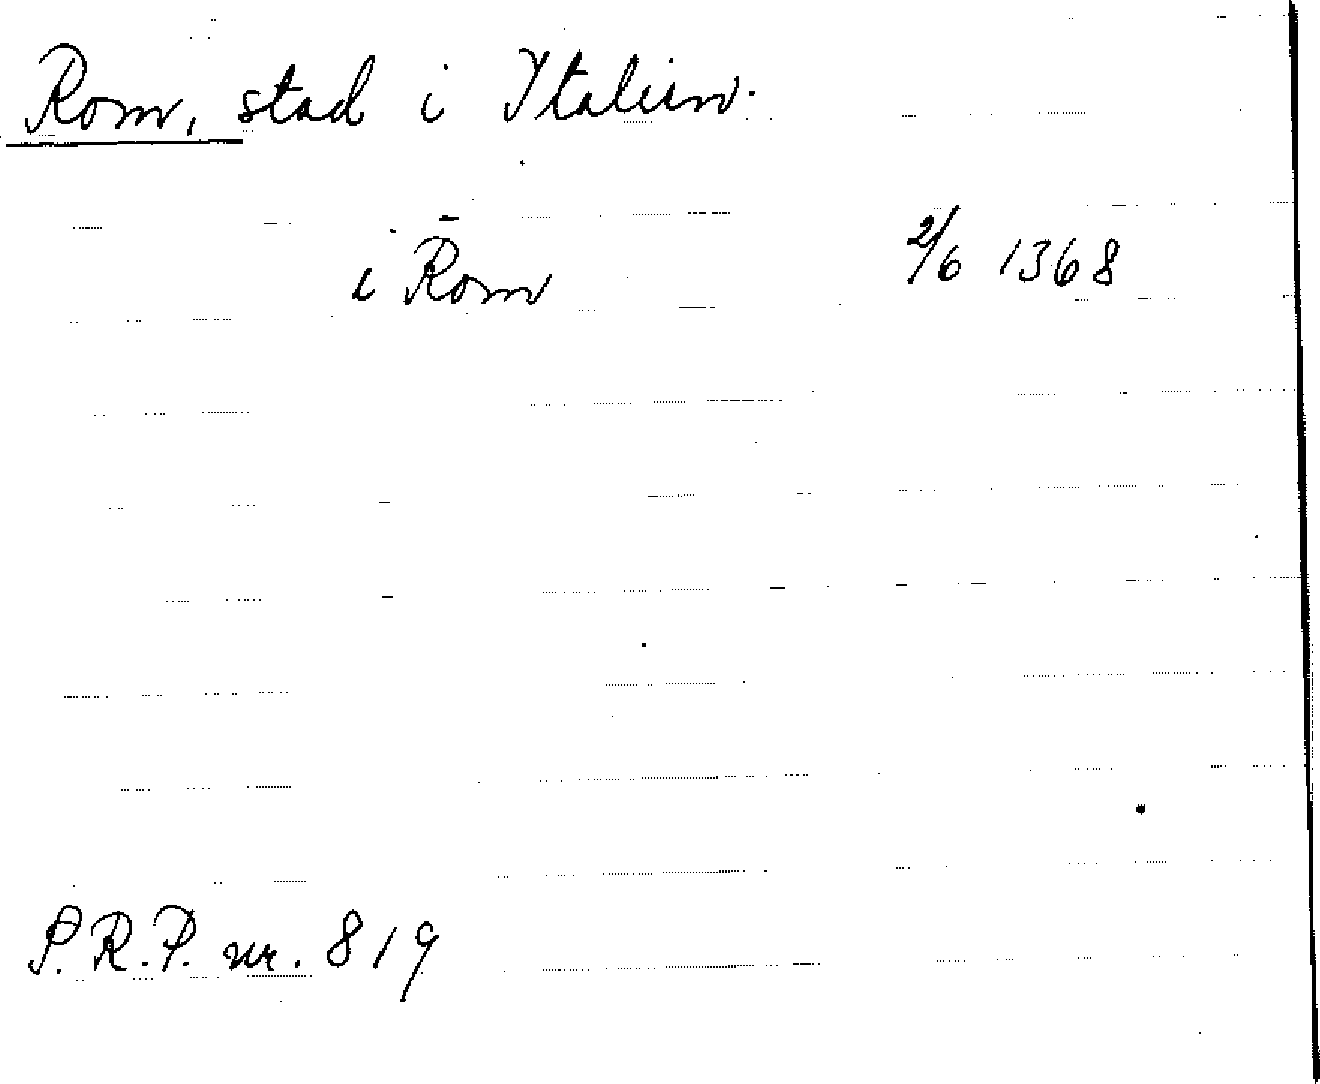 Rom, stad i Italien.
i Rōm 2/6 1368
S.R.P. nr. 819